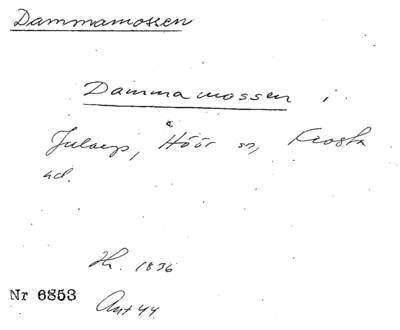 Dammamossen
Damma mossen i
Jularp, Höör sn, Frosta
hd.
Hk. 1836
Nr 6853
Ant 44